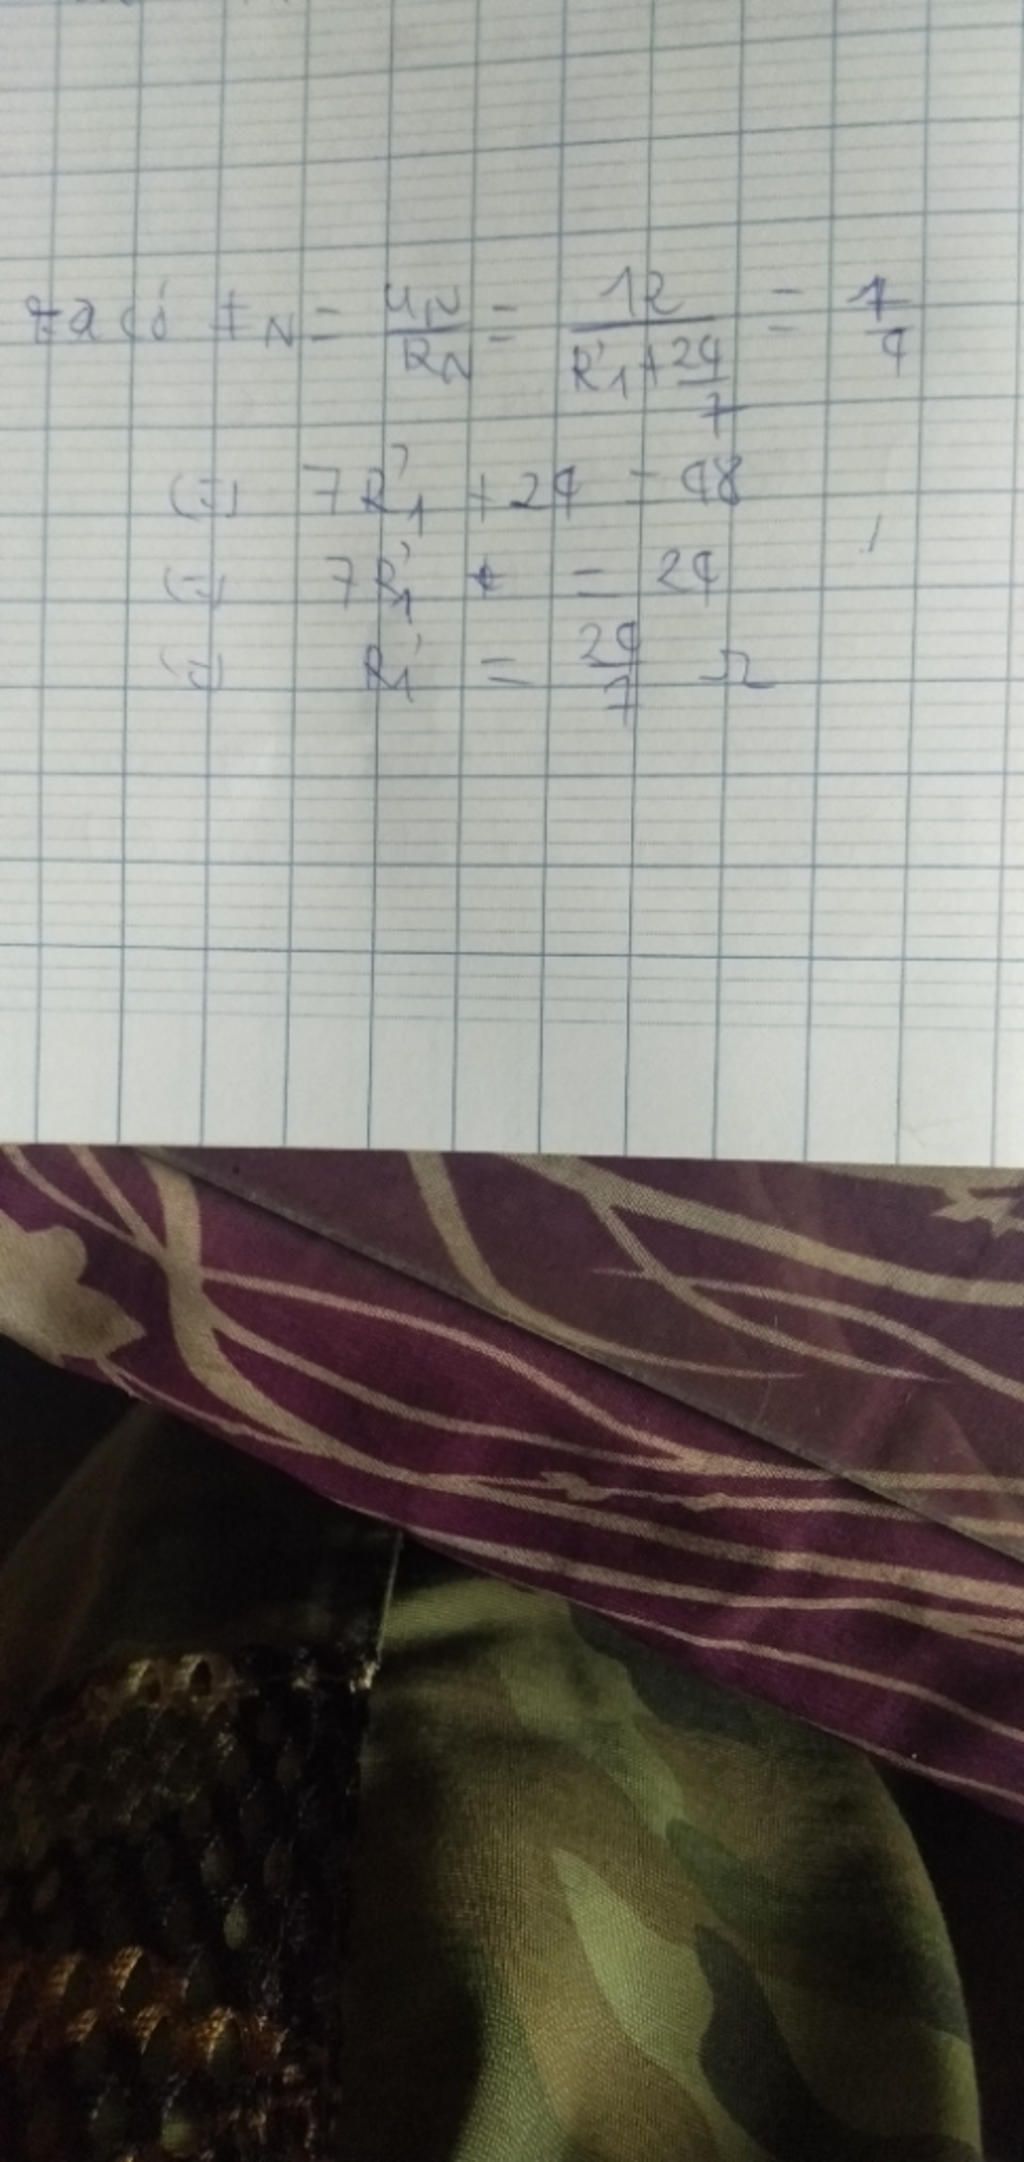 ta có I_N = U_N/R_N = 12/(R'_1 + 24/7) = 7/4
(=) 7R'_1 + 24 = 48
(=) 7R'_1 = 24
(=) R'_1 = 24/7 Ω